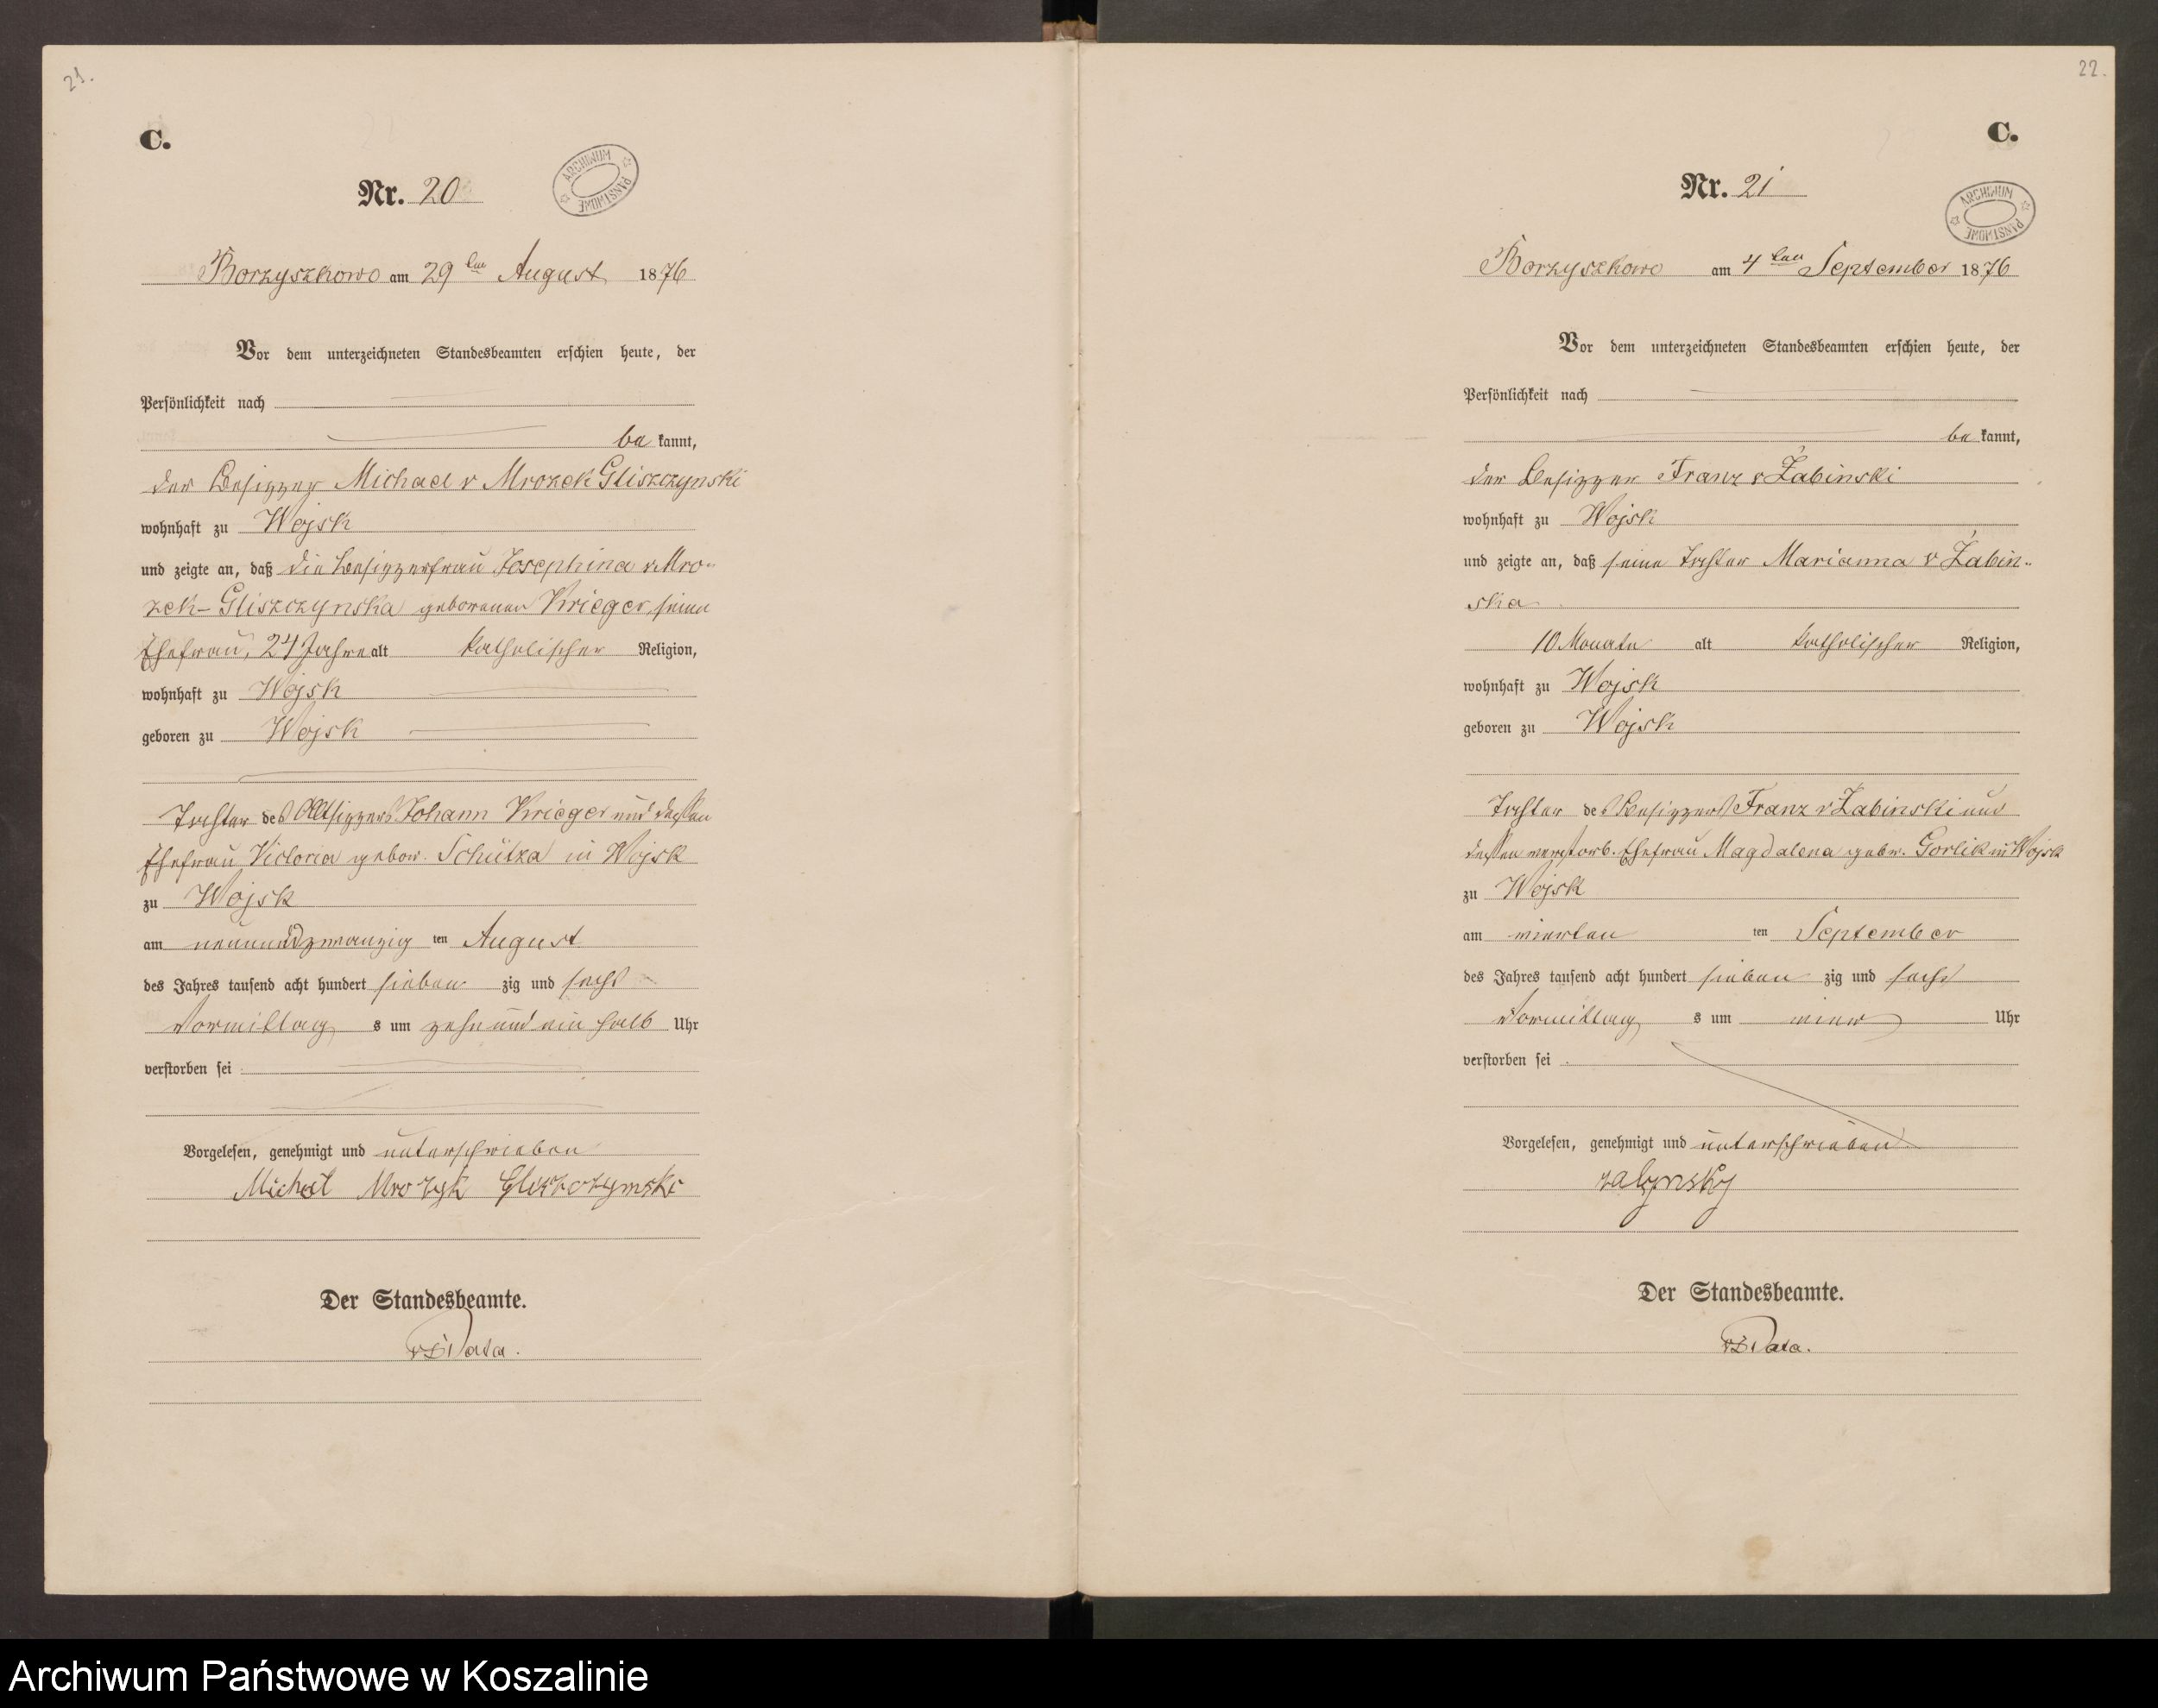 21.
C.
Nr. 20
ARCHIWUM PAŃSTWOWE
Borzyszkowo am 29 ten August 1876
Vor dem unterzeichneten Standesbeamten erschien heute, der
Persönlichkeit nach
be kannt,
der Besizzer Michael v Mrozek Gliszczynski
wohnhaft zu Wojsk
und zeigte an, daß die Besizzerfrau Josephina v. Mro-
zek-Gliszczynska geborenen Krieger, seine
Ehefrau, 24 Jahre alt katholischer Religion,
wohnhaft zu Wojsk
geboren zu Wojsk
Tochter des Altsizzers Johann Krieger und dessen
Ehefrau Victoria gebor. Schütza in Wojsk
zu Wojsk
am neunundzwanzig ten August
des Jahres tausend acht hundert sieben zig und sechs
Vormittag s um zehn und ein halb Uhr
verstorben sei
Vorgelesen, genehmigt und unterschrieben
Michał Mrozyk
Der Standesbeamte.
22.
C.
Nr. 21
ARCHIWUM PAŃSTWOWE
Borzyszkowo am 4 ten September 1876
Vor dem unterzeichneten Standesbeamten erschien heute, der
Persönlichkeit nach
be kannt,
der Besizzer Franz v Żabinski
wohnhaft zu Wojsk
und zeigte an, daß seine Tochter Marianna v Żabin-
ska
10 Monate alt katholischer Religion,
wohnhaft zu Wojsk
geboren zu Wojsk
Tochter des Besizzers Franz v Żabinski und
dessen verstorb. Ehefrau Magdalena gebr. Gorlik in Wojsk
zu Wojsk
am vierten ten September
des Jahres tausend acht hundert sieben zig und sechs
Vormittag s um vier Uhr
verstorben sei
Vorgelesen, genehmigt und unterschrieben
Der Standesbeamte.
Archiwum Państwowe w Koszalinie